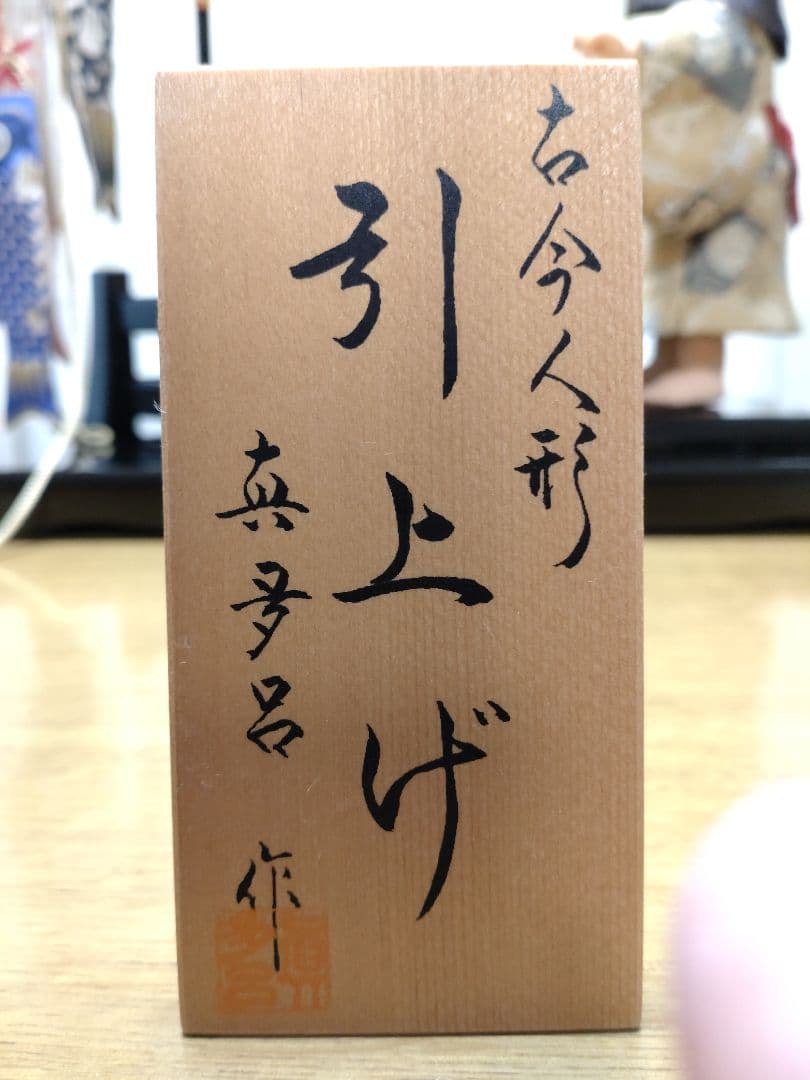 古今人形
引上げ
真多呂作